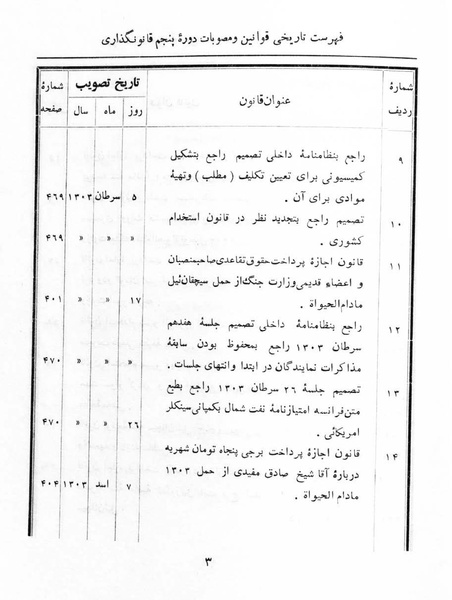 فهرست تاریخی قوانین و مصوبات دورهٔ پنجم قانونگذاری
شمارهٔ ردیف عنوان قانون تاریخ تصویب شمارهٔ صفحه
روز ماه سال
۹ راجع بنظامنامهٔ داخلی تصمیم راجع بتشکیل
کمیسیونی برای تعیین تکلیف ( مطلب ) وتهیهٔ
موادی برای آن . ۵ سرطان ۱۳۰۳ ۴۶۹
۱۰ تصمیم راجع بتجدید نظر در قانون استخدام
کشوری . » » » ۴۶۹
۱۱ قانون اجازهٔ پرداخت حقوق تقاعدی صاحبمنصبان
و اعضاء قدیمی وزارت جنگ از حمل سیچقان ئیل
مادام الحیواة . ۱۷ » » ۴۰۱
۱۲ راجع بنظامنامهٔ داخلی تصمیم جلسهٔ هفدهم
سرطان ۱۳۰۳ راجع بمحفوظ بودن سابقهٔ
مذاکرات نمایندگان در ابتدا وانتهای جلسات . » » » ۴۷۰
۱۳ تصمیم جلسهٔ ۲۶ سرطان ۱۳۰۳ راجع بطبع
متن فرانسه امتیازنامهٔ نفت شمال بکمپانی سینکلر
امریکائی . ۲۶ » » ۴۷۰
۱۴ قانون اجازهٔ پرداخت برجی پنجاه تومان شهریه
دربارهٔ آقا شیخ صادق مفیدی از حمل ۱۳۰۳
مادام الحیواة . ۷ اسد ۱۳۰۳ ۴۰۴
۳